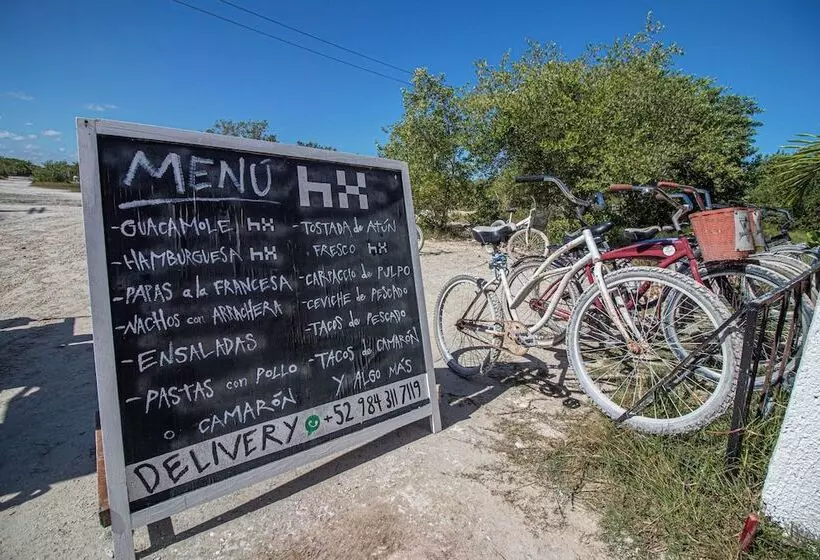 MENÚ
hx
-GUACAMOLE hx
-HAMBURGUESA hx
-PAPAS a la FRANCESA
-NACHOS con ARRACHERA
-ENSALADAS
-PASTAS con POLLO
o CAMARÓN
-TOSTADA de ATÚN
FRESCO hx
-CARPACCIO de PULPO
-CEVICHE de PESCADO
-TACOS de PESCADO
-TACOS de CAMARÓN
Y ALGO MÁS
DELIVERY +52 984 311 7119